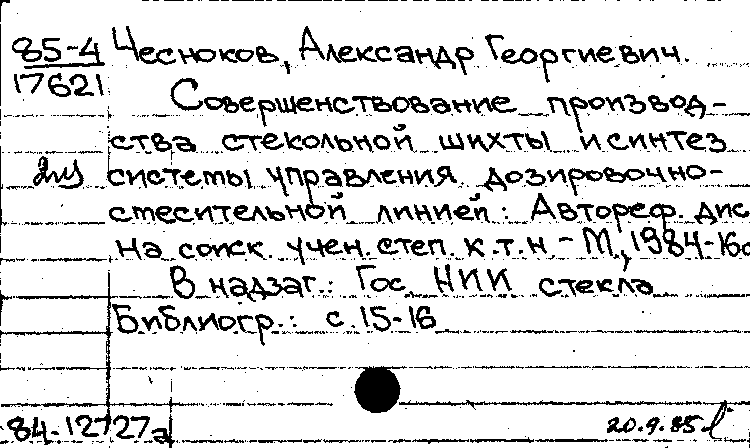 85-4 Чесноков, Александр Георгиевич.
17621
Совершенствование производ-
ства стекольной шихты и синтез
системы управления дозировочно-
стесительной линией: Автореф. дис
на соиск. учен. степ. к.т.н - М., 1984-16с
В надзаг.: Гос. НИИ стекла
Библиогр.: с. 15-16
84-12727а
20.9.85